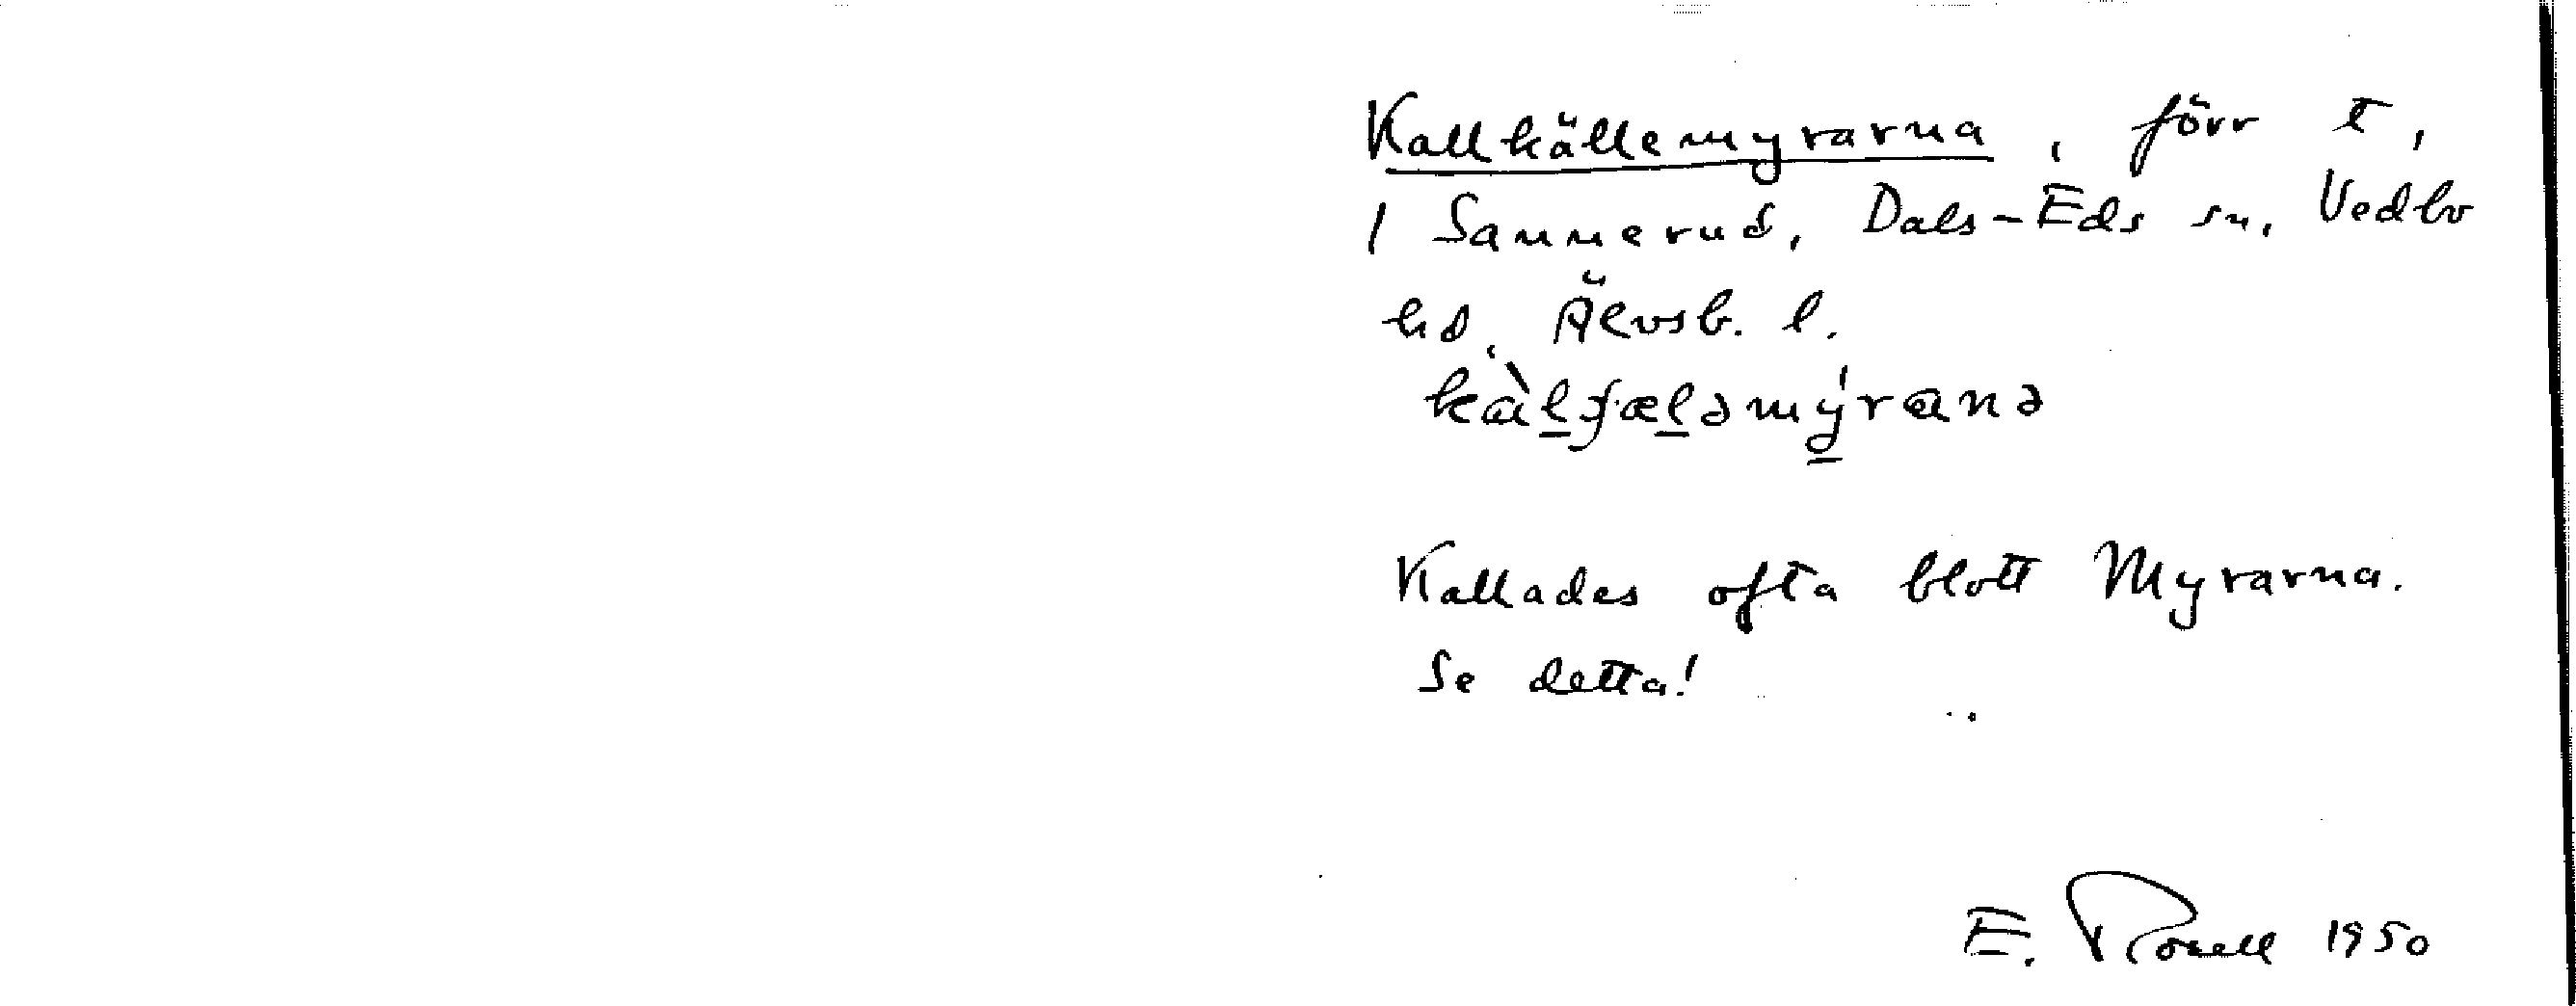 Kallkällemyrarna, förr t,
1 Sannerud, Dals-Eds sn, Vedbo
hd, Älvsb. l.
kàlʃæləmýranə
Kallades ofta blott Myrarna.
Se detta!
E. Rosell 1950